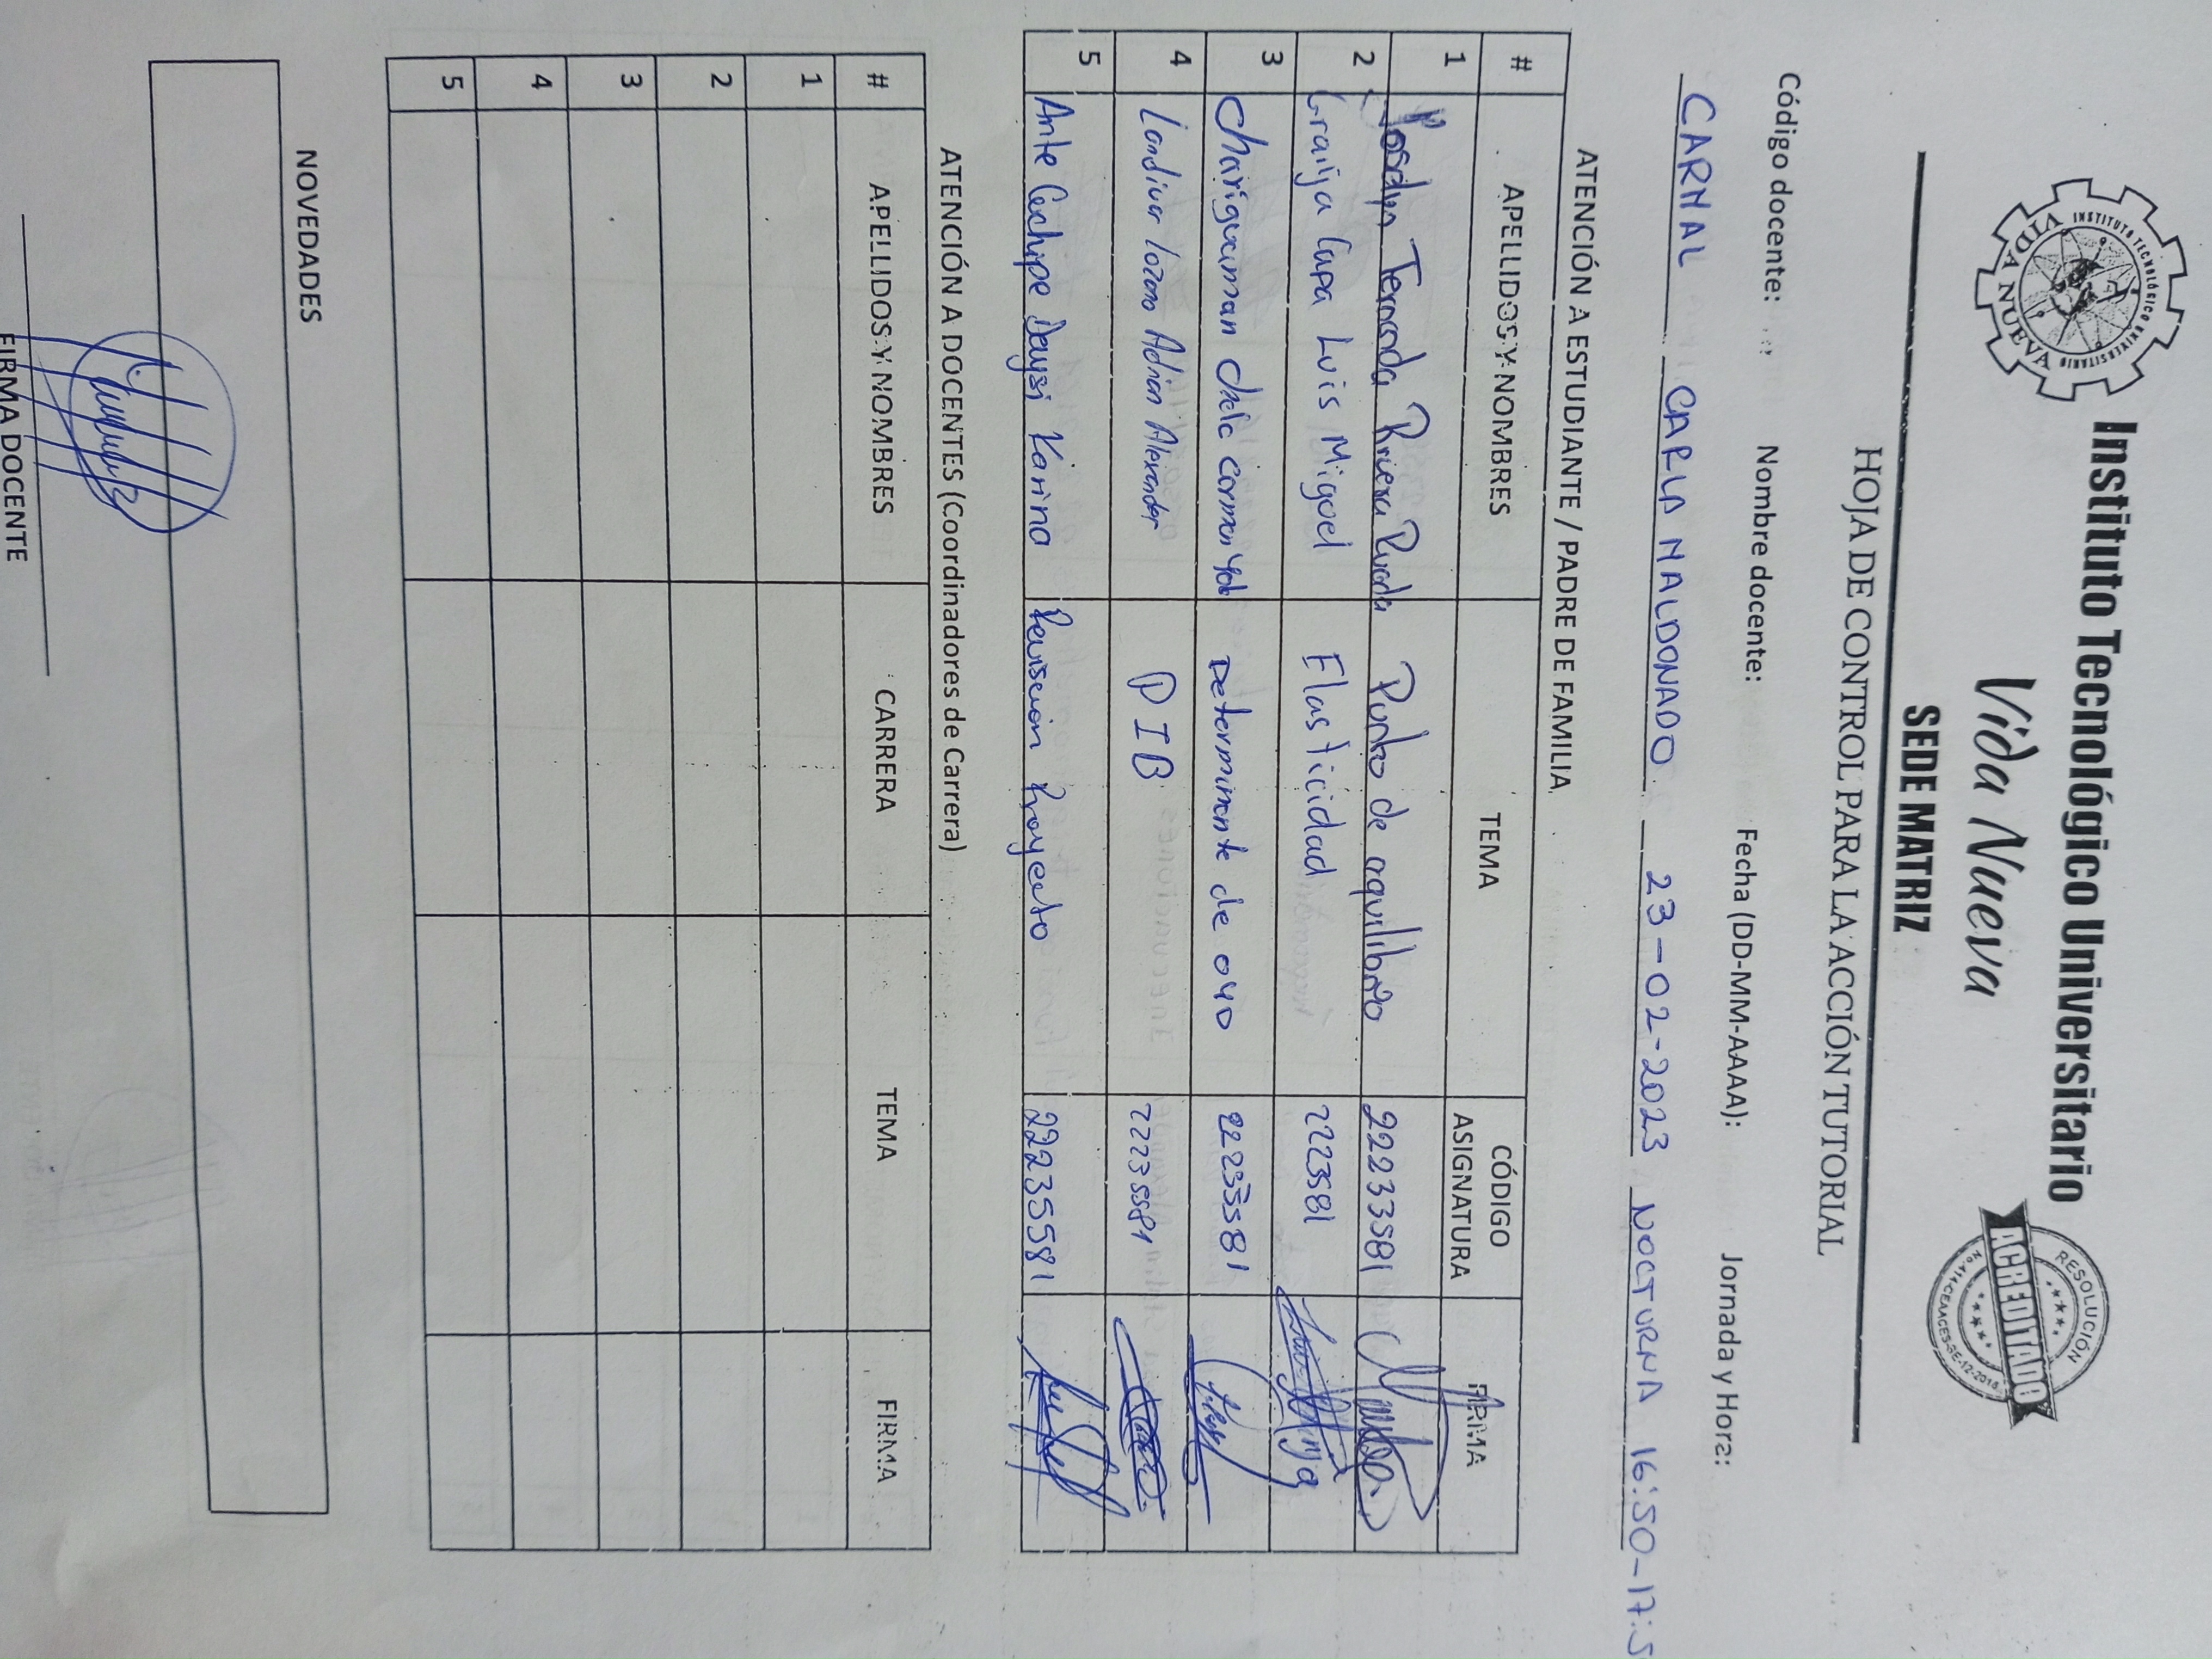 Instituto Tecnológico Universitario
Vida Nueva
SEDE MATRIZ
INSTITUTO TECNOLÓGICO UNIVERSITARIO
VIDA NUEVA
RESOLUCIÓN
ACREDITADO
HOJA DE CONTROL PARA LA ACCIÓN TUTORIAL
Código docente: Nombre docente: Fecha (DD-MM-AAAA): Jornada y Hora:
CARMAL CARLA MALDONADO 23-02-2023 NOCTURNA 16:50-17:5
ATENCIÓN A ESTUDIANTE / PADRE DE FAMILIA
# APELLIDOS Y NOMBRES TEMA CÓDIGO ASIGNATURA FIRMA
1 Punto de equilibrio 22233581
2 Graija Capa Luis Miguel Elasticidad 2223581
3 Chariguaman Determinante de 22233581
4 Landivar Lozano Adrian Alexander PIB
5 Ante Cachipe Daysi Karina Revision Proyecto 22235581
ATENCIÓN A DOCENTES (Coordinadores de Carrera)
# APELLIDOS Y NOMBRES CARRERA TEMA FIRMA
1
2
3
4
5
NOVEDADES
FIRMA DOCENTE